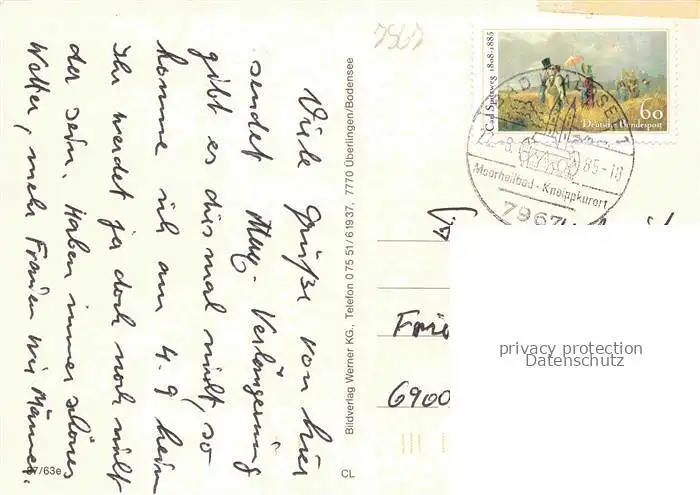 Viele Grüße von hier
sendet Verlängerung
gibt es dies mal nicht, so
komme ich am 4.9 heim
Ihr werdet ja doch noch nicht
da sein. Haben immer schönes
Wetter, mehr Frauen wie Männer.
87/63e
CL
Bildverlag Werner KG., Telefon 0 75 51/6 19 37, 7770 Überlingen/Bodensee
7967
Carl Spitzweg 1808-1885
60
Deutsche Bundespost
BAD WALDSEE 1
85-18
Moorheilbad - Kneippkurort
7967
6900
privacy protection
Datenschutz